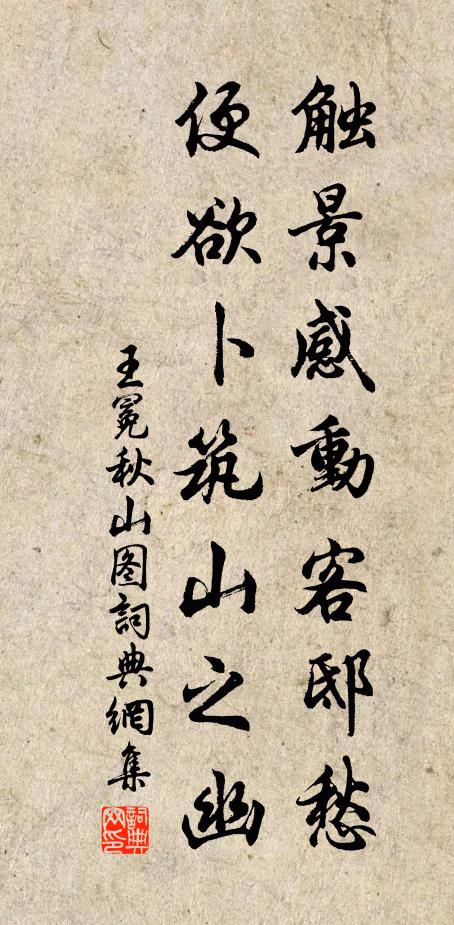 触景感動客邸愁
便欲卜筑山之幽
王冕秋山图詞典網集
詞典網印